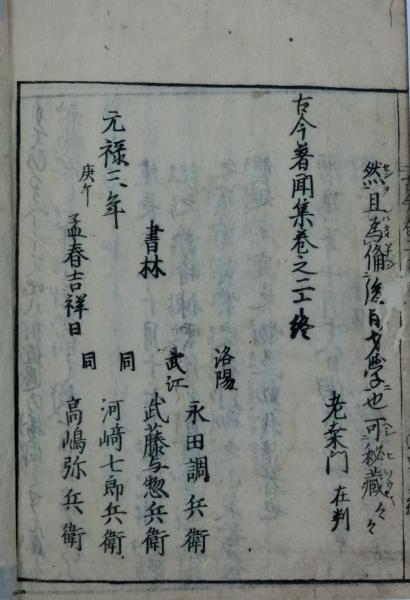 然且為備後日才学也可秘蔵々々
老桑門 在判
古今著聞集巻之二十終
元禄三年
庚午
孟春吉祥日
書林
洛陽
永田調兵衛
武江
武藤与惣兵衛
同
河﨑七郎兵衛
同
高嶋弥兵衛